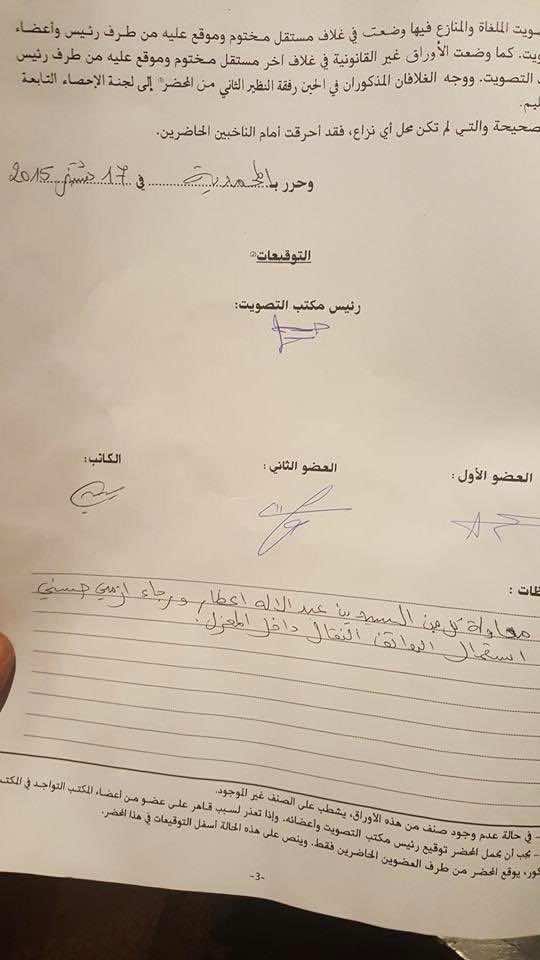 صويت الملغاة والمنازع فيها وضعت في غلاف مستقل مختوم وموقع عليه من طرف رئيس وأعضاء
يت. كما وضعت الأوراق غير القانونية في غلاف اخر مستقل مختوم وموقع عليه من طرف رئيس
التصويت. ووجه الغلافان المذكوران في الحين رفقة النظير الثاني من المحضر إلى لجنة الإحصاء التابعة
ليم.
صحيحة والتي لم تكن محل أي نزاع، فقد أحرقت أمام الناخبين الحاضرين.
وحرر بالمحمدية في 17 شتنبر 2015
التوقيعات
رئيس مكتب التصويت:
العضو الأول :
العضو الثاني :
الكاتب :
ظات :
محاولة كل من السيدين عبد الاله اعطار ورجاء حسني
استعمال الهواتف النقال داخل المعزل.
- في حالة عدم وجود صنف من هذه الأوراق، يشطب على الصنف غير الموجود.
- يجب أن يحمل المحضر توقيع رئيس مكتب التصويت وأعضائه. وإذا تعذر لسبب قاهر على عضو من أعضاء المكتب التواجد في المكتب
كور، يوقع المحضر من طرف العضوين الحاضرين فقط. وينص على هذه الحالة أسفل التوقيعات في هذا المحضر.
-3-